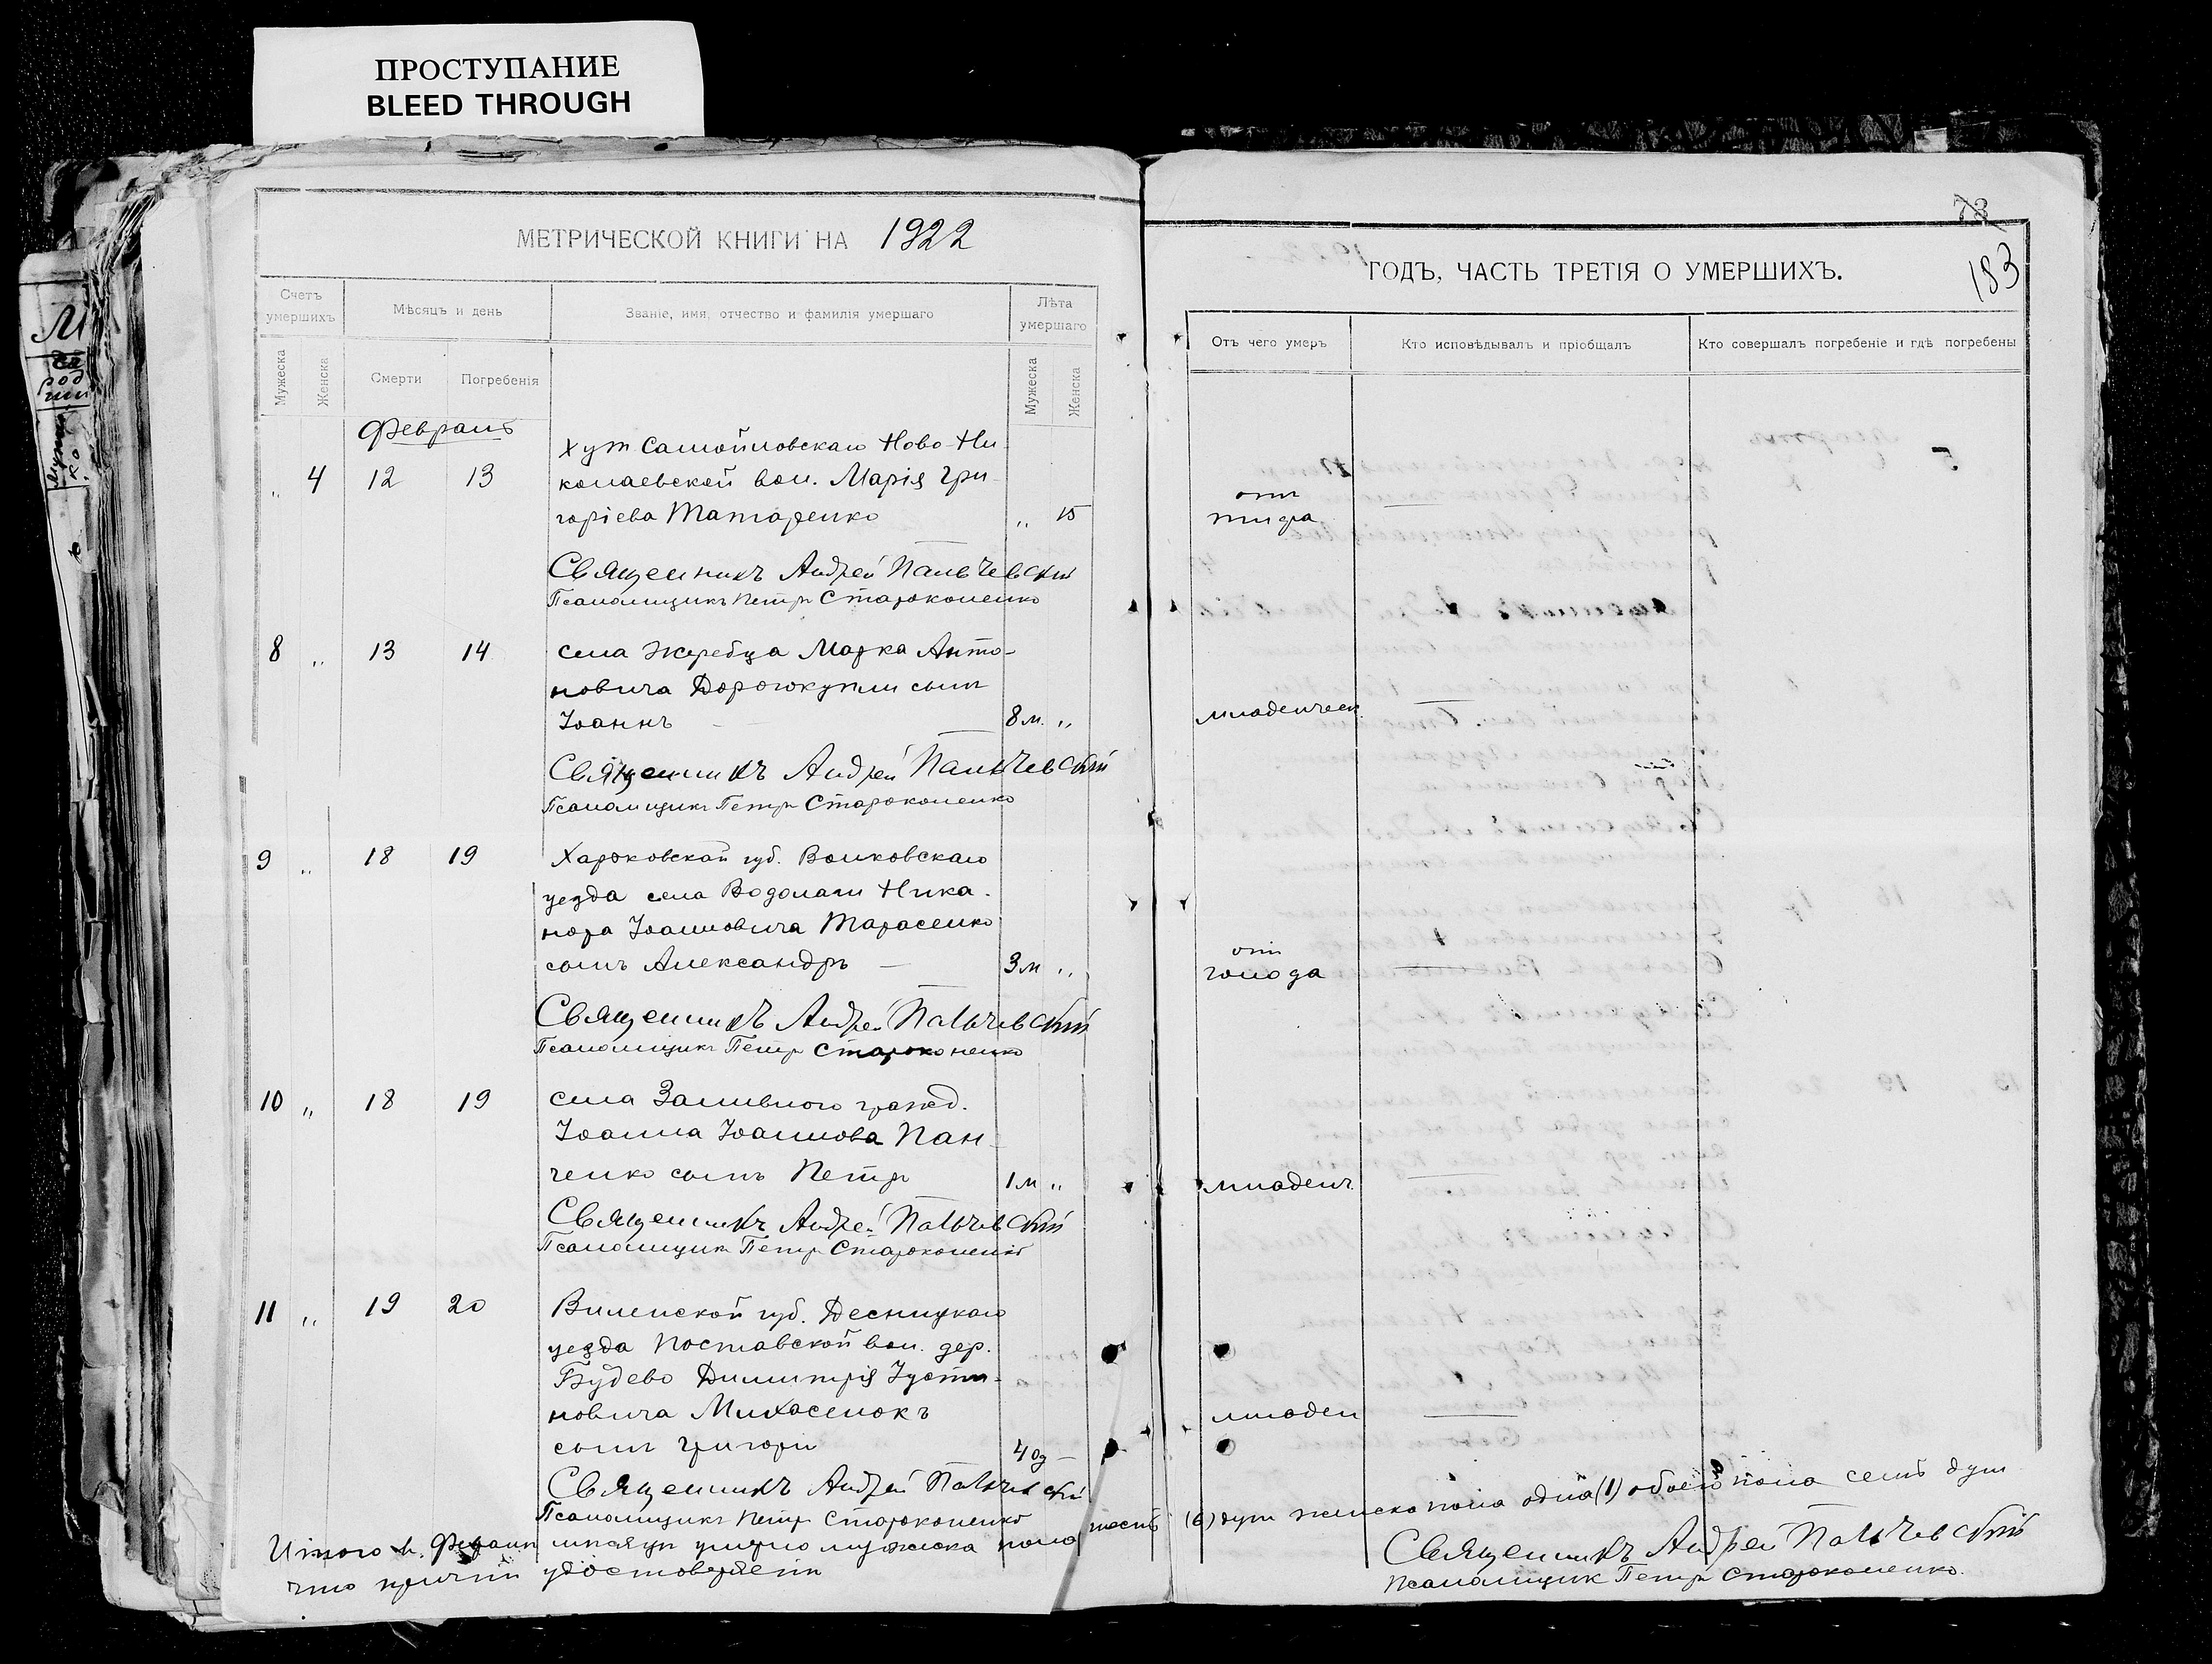 ПРОСТУПАНИЕ
BLEED THROUGH
МЕТРИЧЕСКОЙ КНИГИ НА 1922
Счетъ умершихъ
Мѣсяцъ и день
Званіе, имя, отчество и фамилія умершаго
Лѣта умершаго
Мужеска
Женска
Смерти
Погребенія
Мужеска
Женска
Февраль
Хут Самойловскаго Ново-Ни-
„ 4 12 13 колаевской вол. Марія Гри-
горіева Татаренко „ 15
Священникъ Андрей Пальчевскій
Псаломщикъ Петръ Староконенко
8 „ 13 14 села Жеребца Марка Анто-
новича Дорожкупли сынъ
Іоаннъ — 8 м. „
Священникъ Андрей Пальчевскій
Псаломщикъ Петръ Староконенко
9 „ 18 19 Харьковской губ. Волковскаго
уезда села Водолаги Ника-
нора Іоанновича Тарасенко
сынъ Александръ — 3 м „
Священникъ Андрей Пальчевскій
Псаломщикъ Петръ Староконенко
10 „ 18 19 села Заливного гражд.
Іоанна Іоаннова Пан-
ченко сынъ Петръ 1 м „
Священникъ Андрей Пальчевскій
Псаломщикъ Петръ Староконенко
11 „ 19 20 Виленской губ. Десницкаго
уезда Поставской вол. дер.
Будево Димитрія Іусти-
новича Михасенокъ
сынъ Григори 4 од —
Священникъ Андрей Пальчевскій
Псаломщикъ Петръ Староконенко
Итого умерло мужеска пола шесть
что причтъ удостоверяетъ
78
183
ГОДЪ, ЧАСТЬ ТРЕТІЯ О УМЕРШИХЪ.
Отъ чего умеръ
Кто исповѣдывалъ и пріобщалъ
Кто совершалъ погребеніе и гдѣ погребены
отъ
тифа
младенческ.
отъ
голода
младенч.
младен
(6) душ женска пола одна (1) обоего пола семь душ
Священникъ Андрей Пальчевскій
Псаломщик Петръ Староконенко.